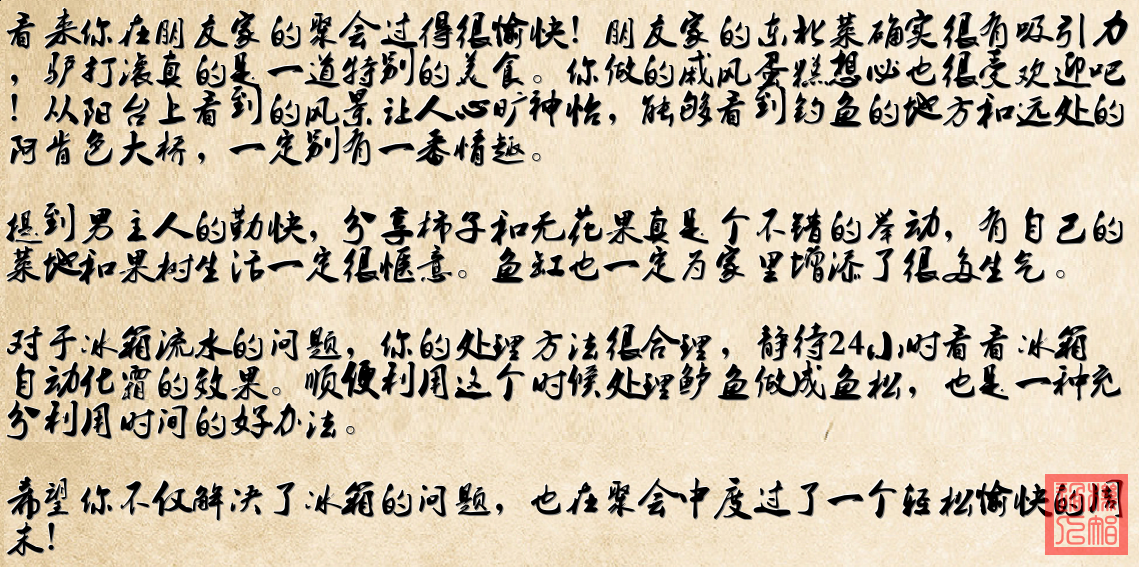 看来你在朋友家的聚会过得很愉快！朋友家的东北菜确实很有吸引力
，驴打滚真的是一道特别的美食。你做的戚风蛋糕想必也很受欢迎吧
！从阳台上看到的风景让人心旷神怡，能够看到钓鱼的地方和远处的
阿肯色大桥，一定别有一番情趣。
提到男主人的勤快，分享柿子和无花果真是个不错的举动，有自己的
菜地和果树生活一定很惬意。鱼缸也一定为家里增添了很多生气。
对于冰箱流水的问题，你的处理方法很合理，静待24小时看看冰箱
自动化霜的效果。顺便利用这个时候处理鲈鱼做成鱼松，也是一种充
分利用时间的好办法。
希望你不仅解决了冰箱的问题，也在聚会中度过了一个轻松愉快的周
末！